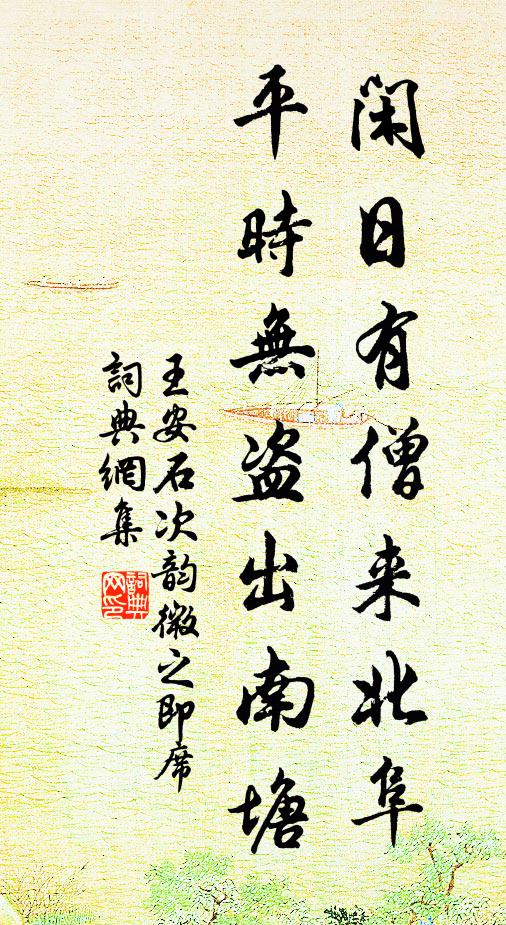 闲日有僧来北阜
平時無盗出南塘
王安石次韵微之即席
詞典網集
詞典
网印